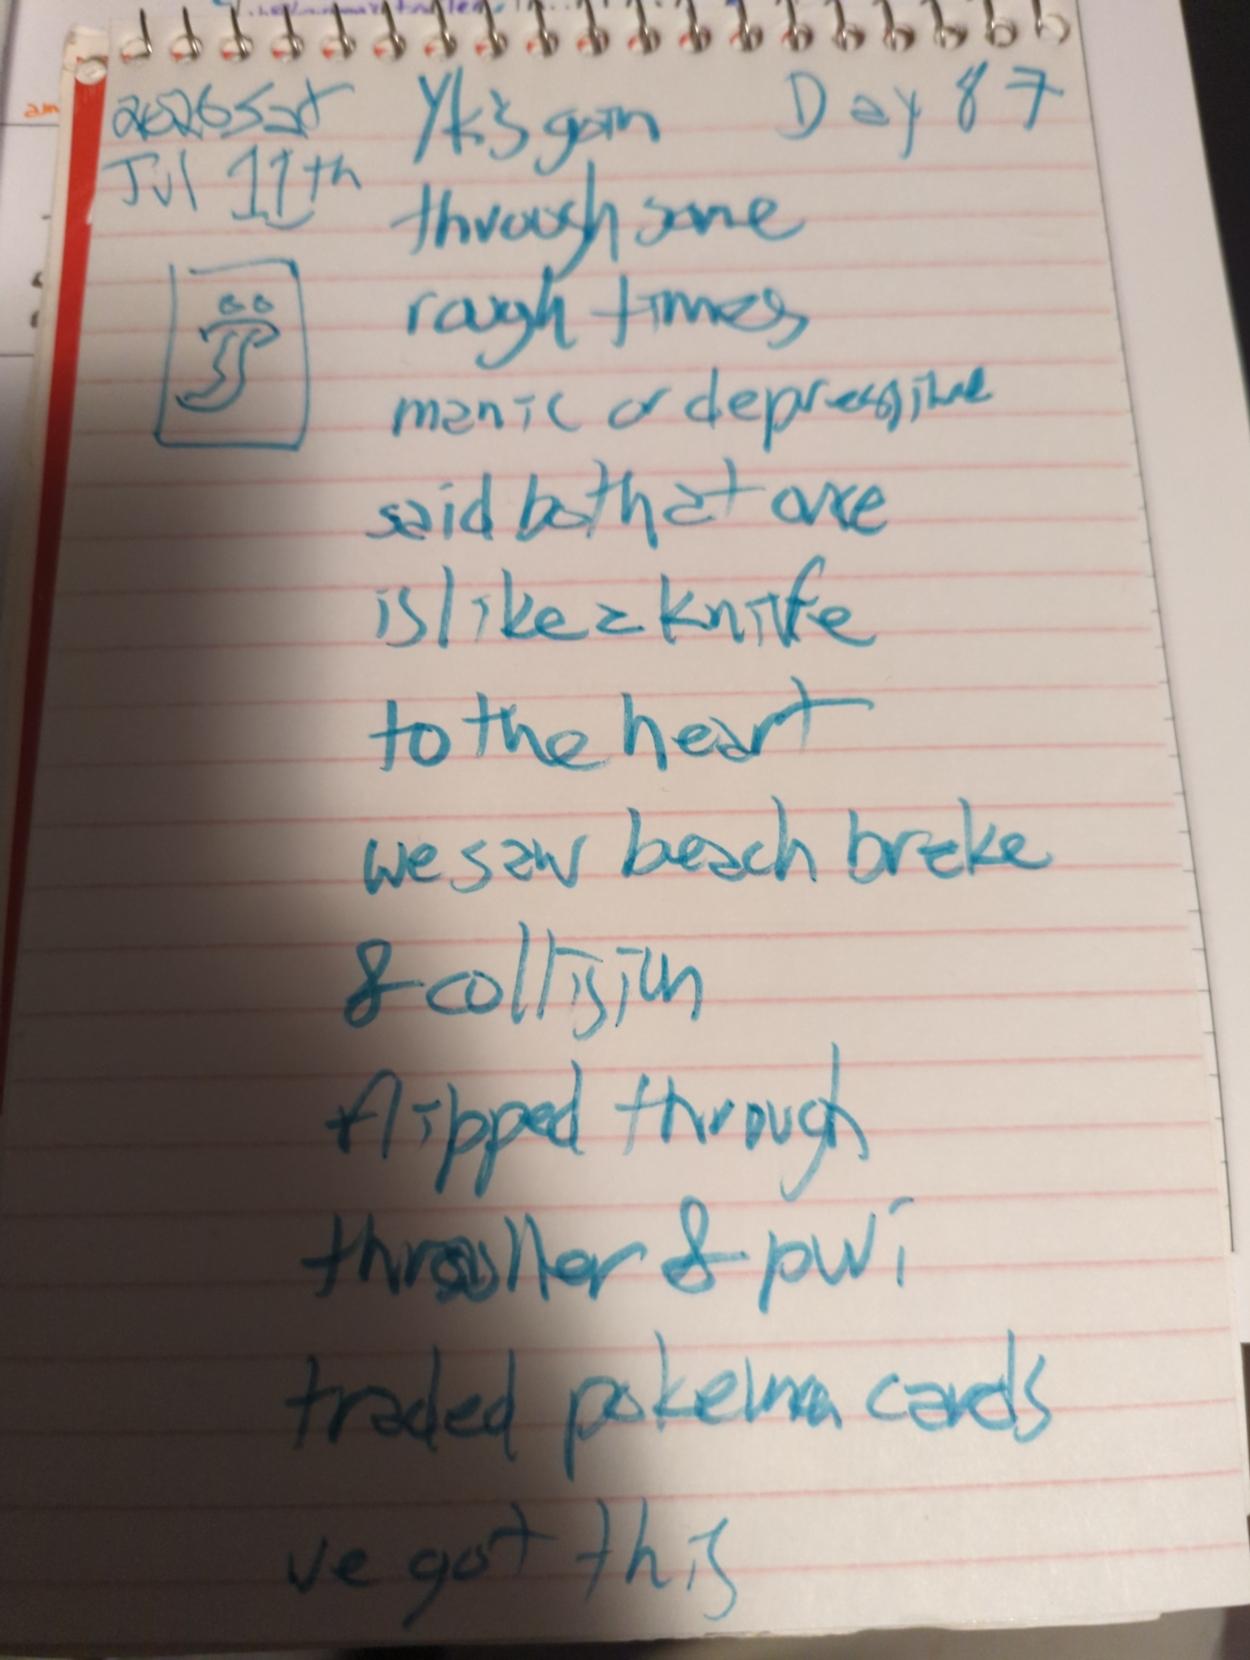 2026 Sat
Jul 11th
Yk's goin Day 87
through some
rough times
manic or depressive
said both at once
is like a knife
to the heart
we saw beach brake
& collision
flipped through
thriller & pwi
traded pokemon cards
ve got this